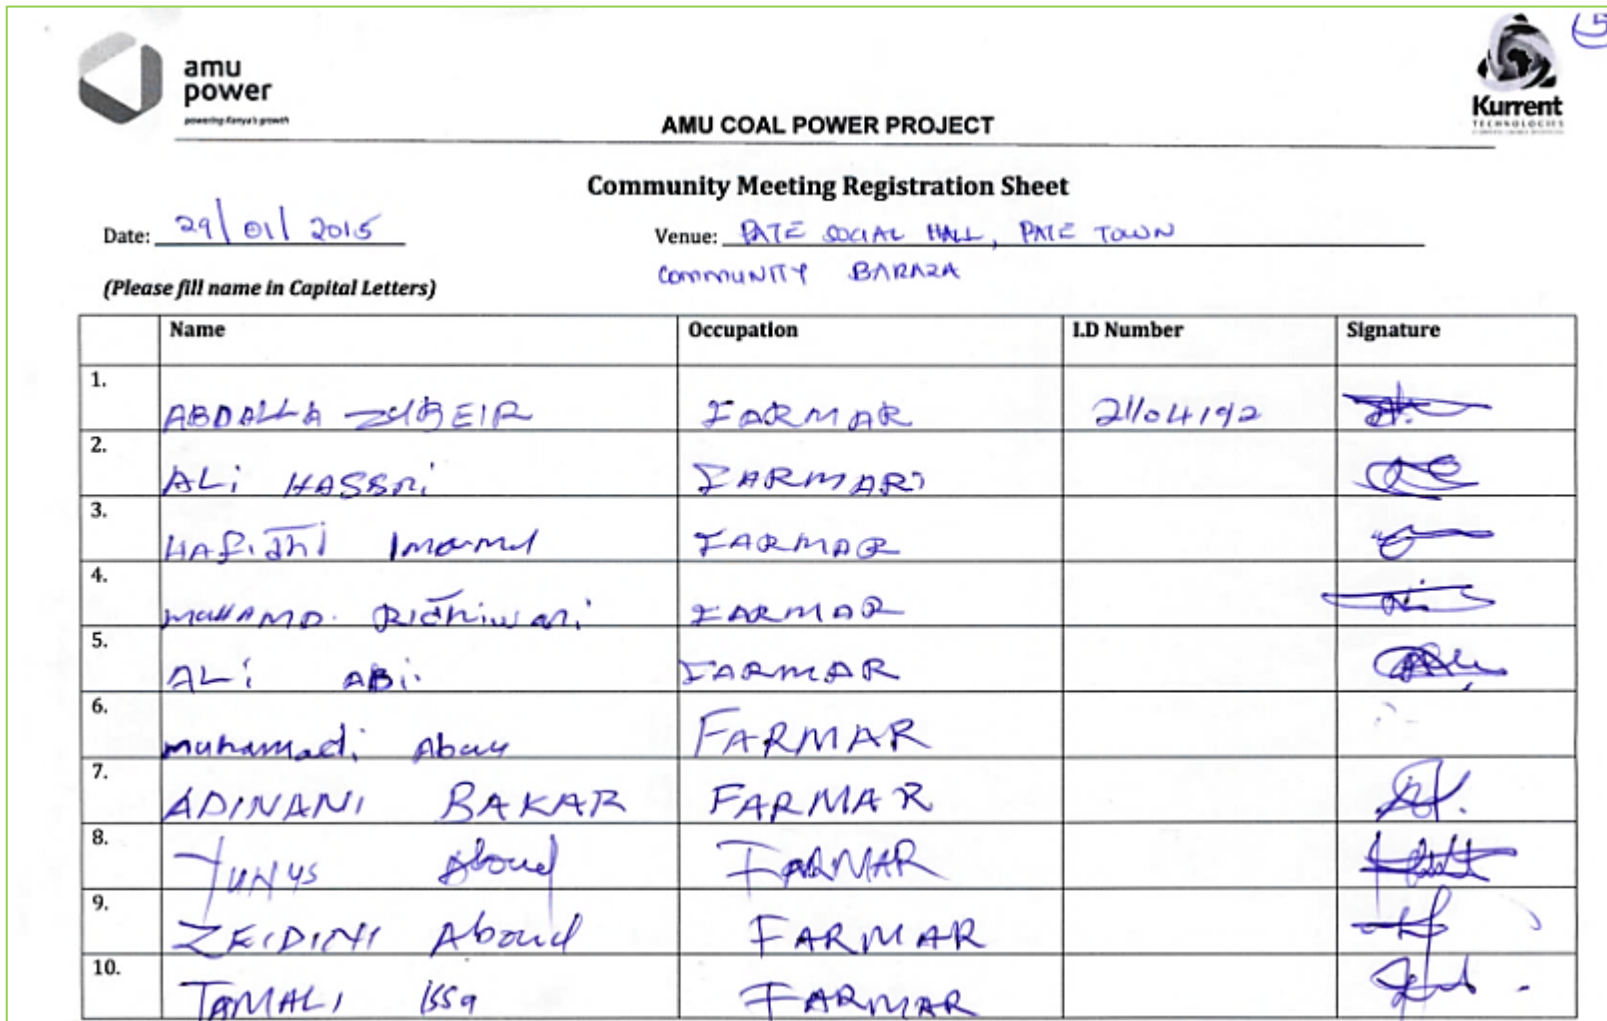 5
amu
power
powering Kenya's growth
Kurrent
TECHNOLOGIES
AMU COAL POWER PROJECT
Community Meeting Registration Sheet
Date: 29/01/2015 Venue: PATE SOCIAL HALL, PATE TOWN
COMMUNITY BARAZA
(Please fill name in Capital Letters)
Name Occupation I.D Number Signature
1. ABDALLA ZUBEIR FARMAR 21104192
2. ALi HASSNi FARMAR
3. HAFidhi FARMAR
4. MUHAMD. Ridhiwani FARMAR
5. ALi ABi FARMAR
6. muhamadi Abau FARMAR
7. ADINANI BAKAR FARMAR
8. YUNUS Aboud FARMAR
9. ZEIDINI Aboud FARMAR
10. TAMALI issa FARMAR